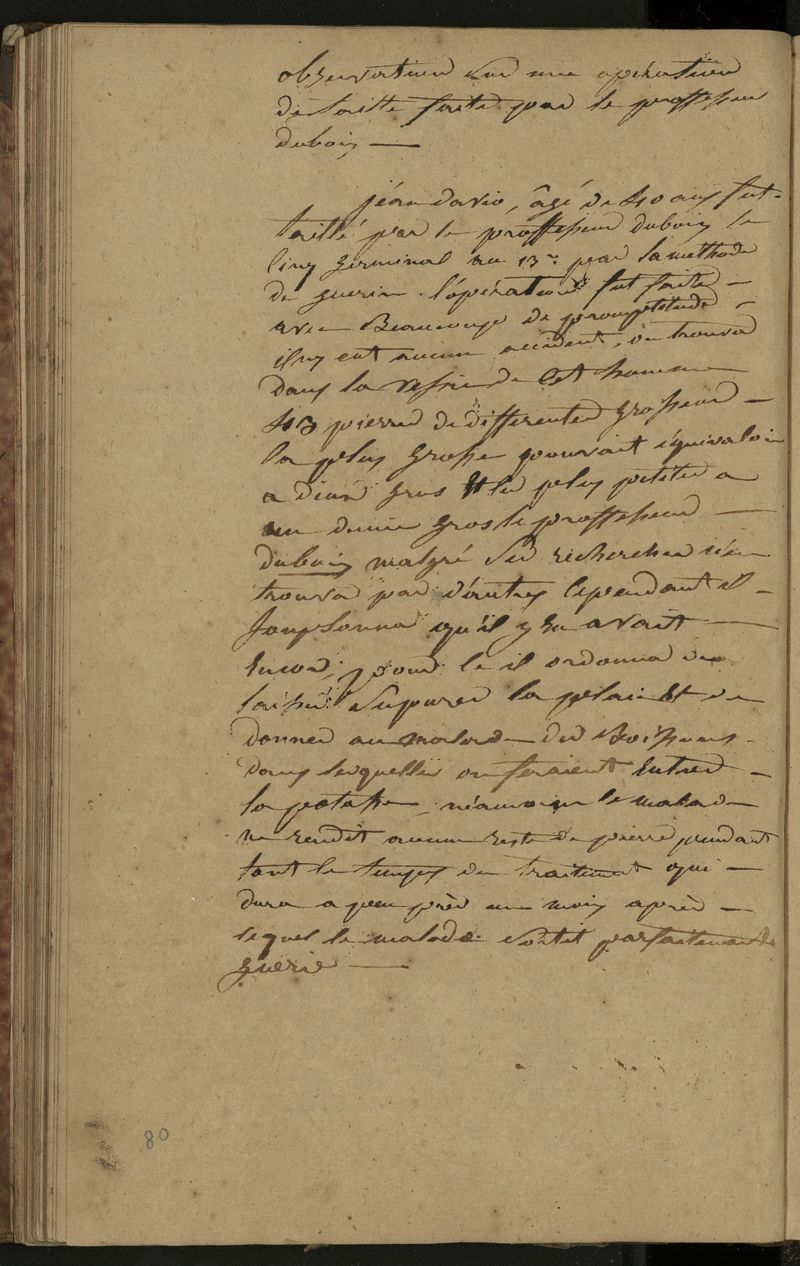 observation sur une opération
de taille faite par le proffesseur
dubois —
jéan davio, âgé de 40 ans fut
taillé par le proffesseur dubois le
cinq germinal an 13e par la méthode
de guerin. l'opération fut faite —
avec Beaucoup de promptitude —
il ny eut aucun accident, on trouva
dans la vessie de cet homme
43 pierres de differentes grosseurs —
la plus grosse pouvait équivaloir
a deux gros Et la plus petite a
un demie gros le proffesseur —
dubois malgré ses recherches n'en
trouva pas d'autres cependant il —
soupsonna qu'il y En avait —
Encore, pour ce il ordonna de
laisser supurer la plaie Et de
donner au malade des Boissons
dans lesquelles on feraient Entrer —
la potasse, néanmoins le malade
ne rendit aucun reste de pierre pendant
tout le temps du traitement qui —
dura a peu près un mois après —
lequel le malade sortit parfaitement
guerie —
80